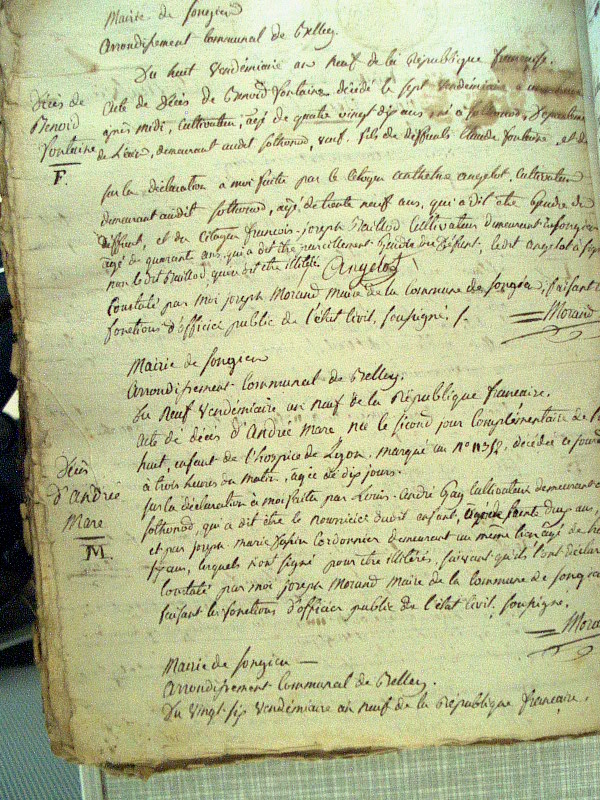 Mairie de Songieu
Arrondissement Communal de Belley.
Du huit vendémiaire an neuf de la République française.
Décès de
Benoid
Fontaine
F.
Acte de décès de Benoid Fontaine décédé le sept vendémiaire à
après midi, cultivateur, agé de quatre vingt dix ans, né à Sothonod, département
de L'ain, demeurant audit Sothonod, veuf. fils de deffunts Claude Fontaine, et de
sur la déclaration à moi faite par le Citoyen anthelme angelot, cultivateur
demeurant audit Sothonod, agé de trente neuf ans, qui a dit être gendre du
deffunt, et du citoyen françois-joseph Baillod cultivateur demeurant
agé de quarante ans, qui a dit être pareillement gendre du défunt, ledit angelot a signé
non ledit Baillod, pour être illitéré. Angelot
Constaté par moi joseph Morand maire de la commune de Songieu, faisant les
fonctions d'officier public de l'état civil, soussigné /.
Morand
Mairie de Songieu
Arrondissement Communal de Belley.
Du neuf vendémiaire an neuf de la République française.
Décès
d'andré
Mare
M.
Acte de décès d'André Mare né le second jour complémentaire de l'an
huit, enfant de l'hospice de Lyon, marqué au N° décédée ce jourd'hui
à trois heures du matin, agée de dix jours.
sur la déclaration à moi faite par Louis-André Gay cultivateur demeurant à
Sothonod, qui a dit être le nourricier dudit enfant, ans,
et par joseph marie Cordonnier demeurant au même lieu, agé de
ans, lesquels n'ont signé pour être illitérés, suivant qu'ils l'ont déclaré
Constaté par moi joseph Morand maire de la commune de Songieu
faisant les fonctions d'officier public de l'état civil, soussigné.
Morand
Mairie de Songieu
Arrondissement Communal de Belley.
Du vingt-six vendémiaire an neuf de la République française.